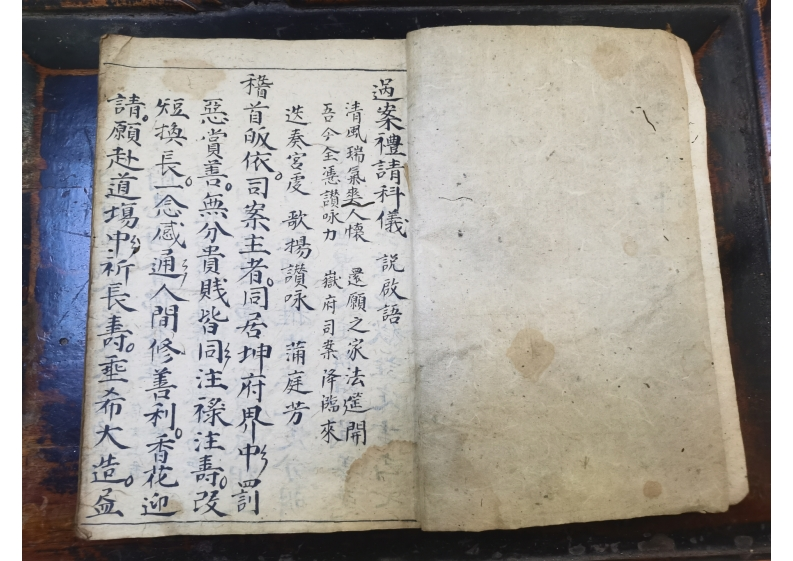 過案禮請科儀 說啟語
清風瑞氣爽人懷 還願之家法筵開
吾今全憑讚咏力 嶽府司案降臨來
迭奏宮虔 歌揚讚咏 蒲庭芳
稽首皈依。司案主者。同居坤府界中罰
惡賞善。無分貴賤皆同注禄注壽。改
短換長。一念感通人間修善利。香花迎
請。願赴道場中祈長壽。垂希大造。益